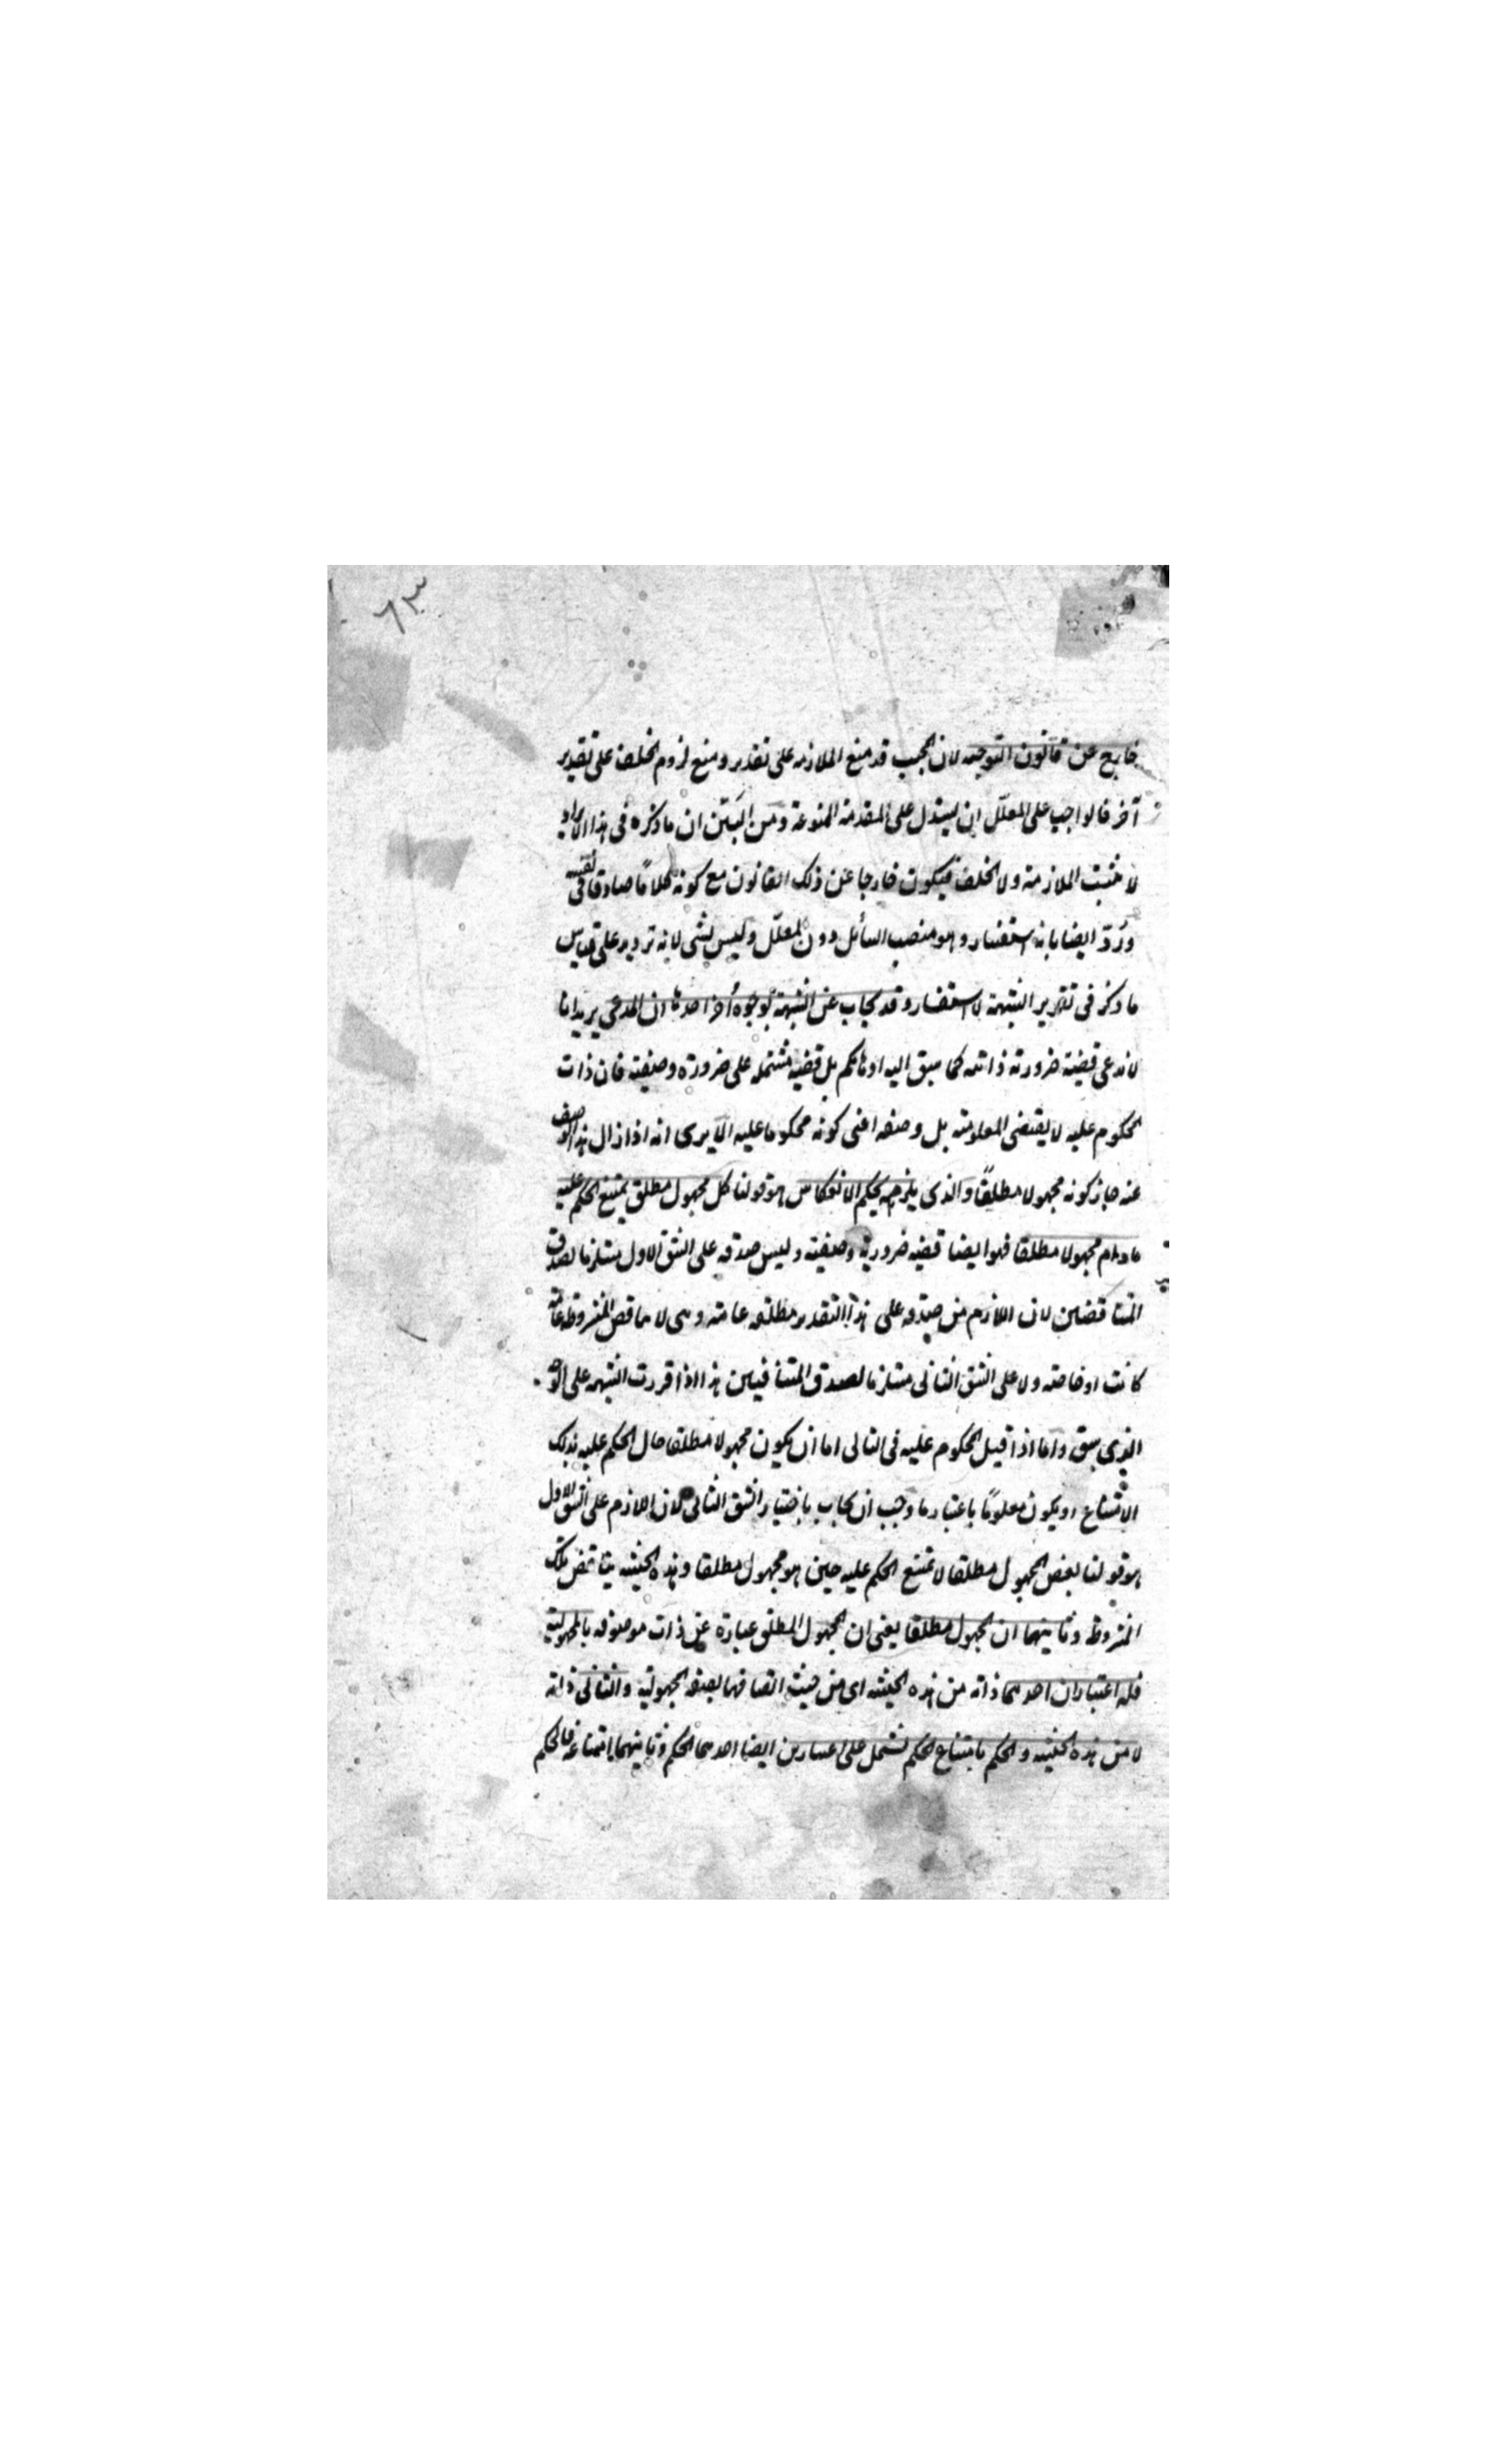 ٦٣
خارج عن قانون التوجيه لان المجيب قد منع الملازمة على تقدير ومنع لزوم الخلف على تقدير
آخر فالواجب على المعلّل ان يستدل على المقدمة الممنوعة ومن البيّن ان ما ذكره فى هذا الايراد
لا يثبت الملازمة ولا الخلف فيكون خارجا عن ذلك القانون مع كونه كلامًا صادقا فى نفسه
ورُدّ ايضا بانه استفسار وهو منصب السائل دون المعلّل وليس بشئ لانه ترديد على قياس
ما ذكر فى تقرير الشبهة لا استفسار وقد يجاب عن الشبهة بوجوه أخر احدها ان المدعى يريد انا
لا ندعى قضية ضرورية ذاتية كما سبق اليه اوهامكم بل قضية مشتملة على ضرورة وصفية فان ذات
المحكوم عليه لا يقتضى المعلومية بل وصفه اعنى كونه محكوما عليه الا يرى انه اذا زال هذا الوصف
عنه جاز كونه مجهولا مطلقًا والذى يلزمه بحكم الانعكاس هو قولنا كل مجهول مطلق يمتنع الحكم عليه
ما دام مجهولا مطلقا فهو ايضا قضية ضرورية وصفية وليس صدقه على الشق الاول مستلزما لصدق
المتناقضين لان اللازم من صدقه على هذا التقدير مطلقة عامة وهى لا تناقض المشروطة عامة
كانت او خاصة ولا على الشق الثانى مستلزما لصدق المتنافيين هذا اذا قررت الشبهة على الوجه
الذى سبق واما اذا قيل المحكوم عليه فى التالى اما ان يكون مجهولا مطلقا حال الحكم عليه بذلك
الامتناع او يكون معلومًا باعتبار ما وجب ان يجاب باختيار الشق الثانى لان اللازم على الشق الاول
هو قولنا بعض المجهول مطلقا لا يمتنع الحكم عليه حين هو مجهول مطلقا وهذه الحينية يناقض تلك
المشروطة وثانيهما ان المجهول مطلقا يعنى ان المجهول المطلق عبارة عن ذات موصوفه بالمجهولية
فله اعتباران احدهما ذاته من هذه الحيثية اى من حيث اتصافها بصفة المجهولية والثانى ذاته
لا من هذه الحيثية والحكم بامتناع الحكم يشتمل على اعتبارين ايضا احدهما الحكم وثانيهما امتناعه فالحكم